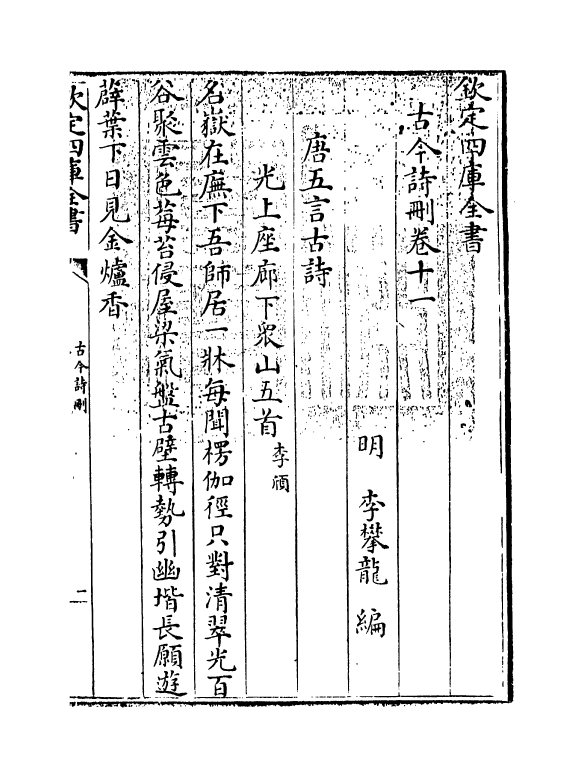 欽定四庫全書
古今詩刪卷十一
明 李攀龍 編
唐五言古詩
光上座廊下衆山五首 李頎
名嶽在廡下吾師居一牀每聞楞伽徑只對清翠光百
谷聚雲色莓苔侵屋梁氣盤古壁轉勢引幽堦長願遊
薜葉下日見金爐香
欽定四庫全書
古今詩刪
二